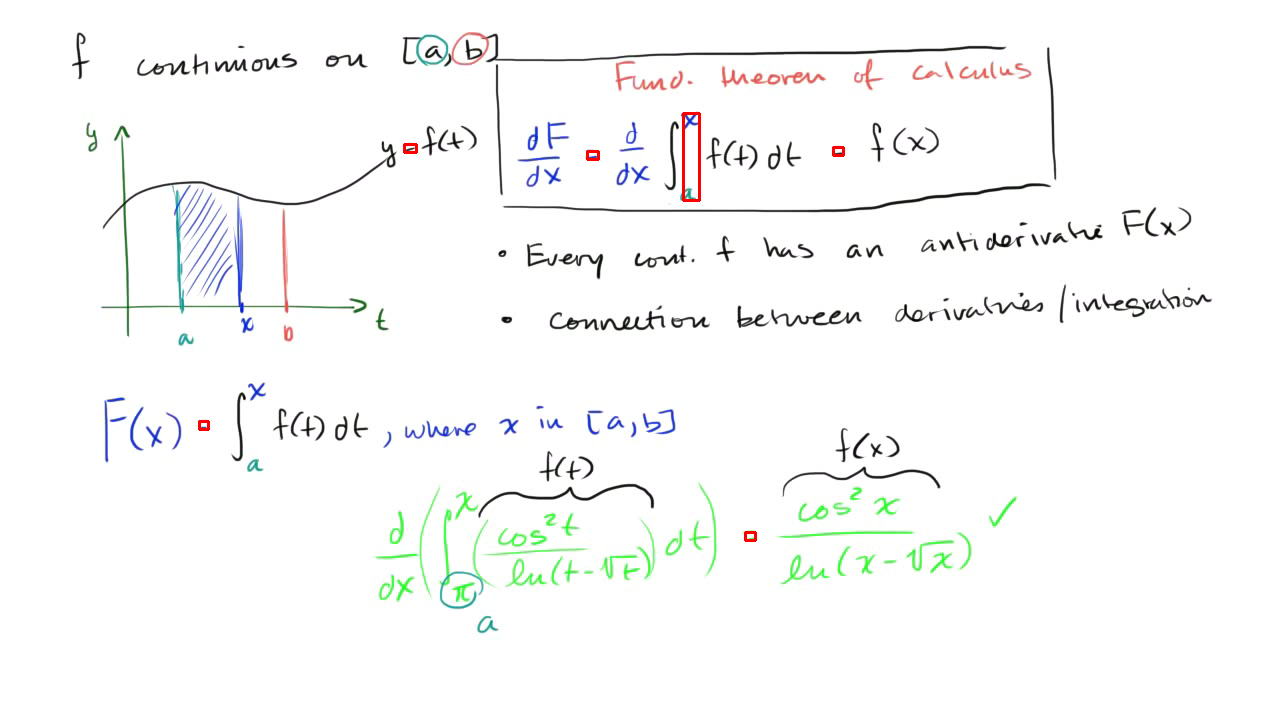 f continuous on [a, b]
Fund. theorem of calculus
y = f(t)
dF/dx = d/dx ∫_a^x f(t) dt = f(x)
y
• Every cont. f has an antiderivative F(x)
• Connection between derivatives/integration
a x b t
F(x) = ∫_a^x f(t) dt, where x in [a, b]
f(t) f(x)
d/dx (∫_π^x (cos²t / ln(t-√t)) dt) = cos²x / ln(x-√x) ✓
a